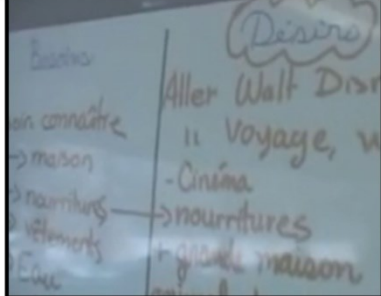 Besoins
connaître
-> maison
-> nourritures
vêtements
Eau
Désirs
Aller Walt
" Voyage,
- Cinéma
-> nourritures
+ grande maison